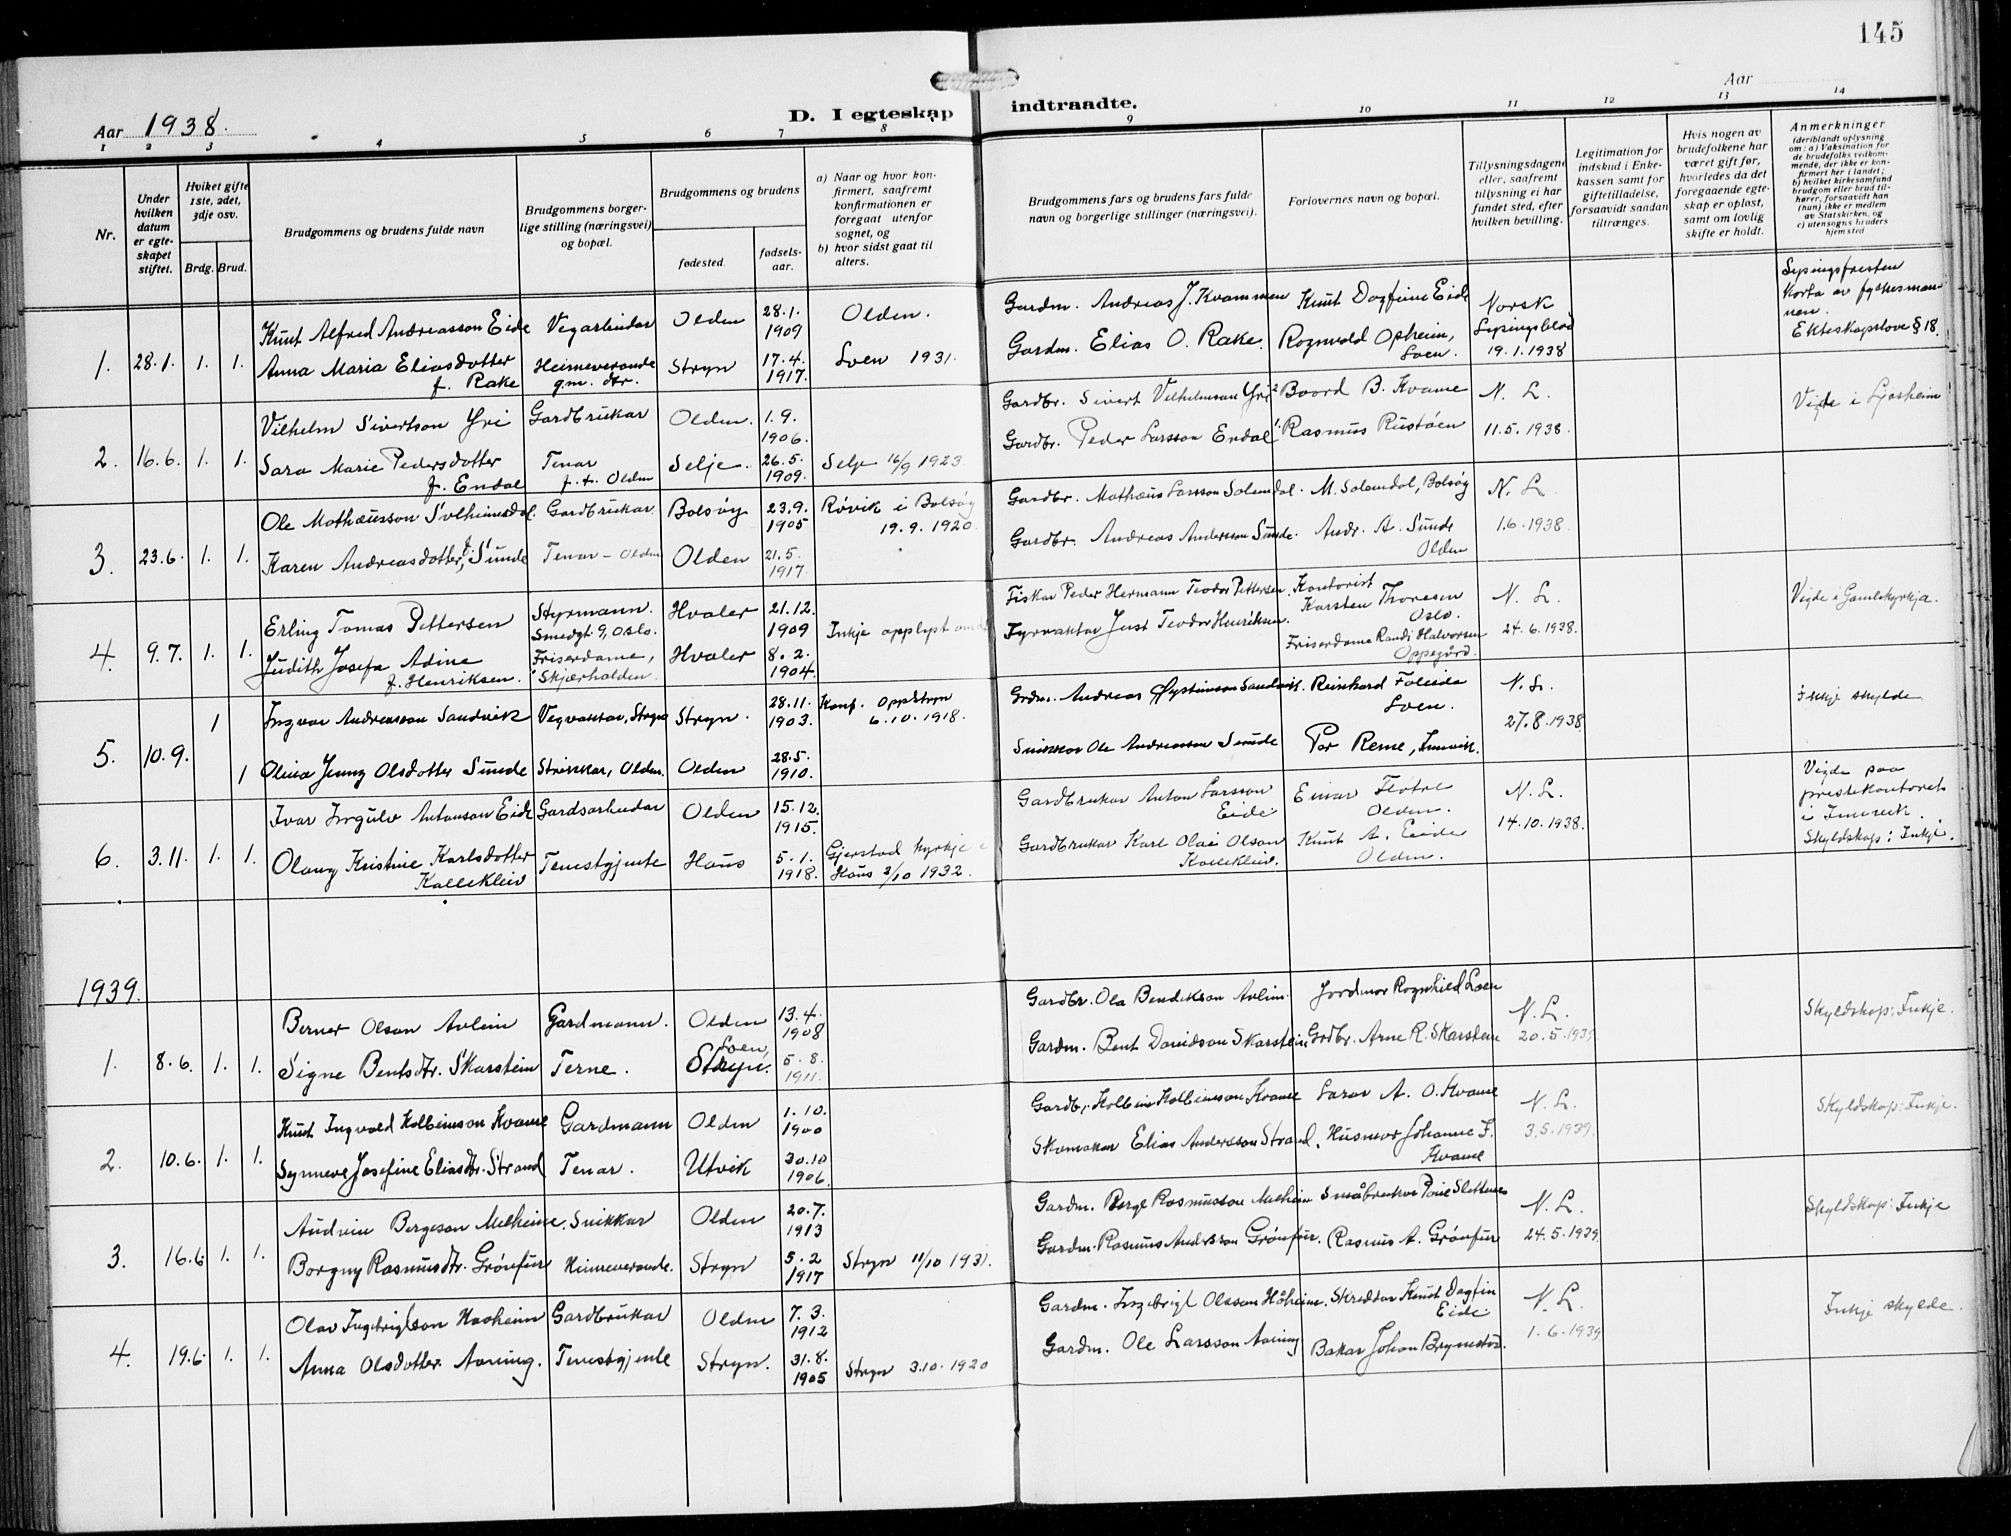 145
Aar 1938.
D. I egteskap indtraadte.
Aar
1 2 3 4 5 6 7 8 9 10 11 12 13 14
Nr.
Under hvilken datum er egteskapet stiftet.
Hviket gifte 1ste, 2det, 3dje osv.
Brdg. Brud.
Brudgommens og brudens fulde navn
Brudgommens borgerlige stilling (næringsvei) og bopæl.
Brudgommens og brudens
fødested.
fødselsaar.
a) Naar og hvor konfirmert, saafremt konfirmationen er foregaat utenfor sognet, og
b) hvor sidst gaat til alters.
Brudgommens fars og brudens fars fulde navn og borgerlige stillinger (næringsvei).
Forlovernes navn og bopæl.
Tillysningsdagene eller, saafremt tillysning ei har fundet sted, efter hvilken bevilling.
Legitimation for indskud i Enkekassen samt for giftetilladelse, forsaavidt saadan tiltrænges.
Hvis nogen av brudefolkene har været gift før, hvorledes da det foregaaende egteskap er opløst, samt om lovlig skifte er holdt.
Anmerkninger
(deriblandt oplysning om: a) Vaksination for de brudefolks vedkommende, der ikke er konfirmert her i landet; b) hvilket kirkesamfund brudgom eller brud tilhører, forsaavidt han (hun) ikke er medlem av Statskirken, og c) utensogns bruders hjemsted
1. 28.1. 1. 1.
Knut Alfred Andreasson Eide Vegarbeidar Olden 28.1. 1909 Olden.
Anna Maria Eliasdotter f. Rake Heimeverande gm. dtr. Stryn 17.4. 1917. Loen 1931.
Gardm. Andreas J. Kvammen Knut Dagfinn Eide Norsk Lysingsblad 19.1.1938
Gardm. Elias O. Rake. Rognvald Opheim, Loen.
Lysingsfresten korta av fylkesmannen. Ekteskapslove § 18.
2. 16.6. 1. 1.
Vilhelm Sivertson Yri Gardbrukar Olden. 1.9. 1906.
Sara Marie Pedersdotter f. Endal Tenar f. t. Olden Selje. 26.5. 1909. Selje 16/9 1923
Gardbr. Sivert Vilhelmson Yri Boord B. Kvame N. L.
Gardbr. Peder Larsson Endal Rasmus Rustøen 11.5.1938.
Vigde i Ljosheim
3. 23.6. 1. 1.
Ole Mathæusson Solheimsdal. Gardbrukar Bolsøy 23.9. 1905 Røvik i Bolsøy 19.9.1920.
Karen Andreasdotter, f. Sunde Tenar - Olden Olden 21.5. 1917.
Gardbr. Mathæus Larsson Solemdal. M. Solemdal, Bolsøy N. L.
Gardbr. Andreas Andersson Sunde. Andr. A. Sunde Olden 1.6.1938
4. 9.7. 1. 1.
Erling Tomas Pettersen Styrmann. Smedgt. 9, Oslo. Hvaler 21.12. 1909 Inkje opplyst om
Judith Josefa Adine f. Henriksen. Friserdame, Skjærhalden. Hvaler 8.2. 1904.
Fiskar Peder Hermann Teodor Pettersen. Kontorist Karsten Thoresen Oslo. N. L.
Fyrvaktar Just Teodor Henriksen. Friserdame Randi Halvorsen Oppegård. 24.6.1938.
Vigde i Gamlekyrkja.
5. 10.9. 1 1
Ingvar Andreasson Sandvik Vegvaktar, Stryn Stryn. 28.11. 1903. Konf. Oppstryn 6.10.1918.
Olina Jenny Olsdotter Sunde Strikkar, Olden. Olden 28.5. 1910.
Grdm. Andreas Øysteinson Sandvik. Reinhard Loen. N. L.
Snikkar Ole Andreasson Sunde Per Reme, Innvik. 27.8.1938
Inkje skylde
6. 3.11. 1. 1.
Ivar Ingulv Antonson Eide Gardsarbeidar Olden 15.12. 1915.
Olaug Kristine Karlsdotter Kallekleiv Tenestgjente Haus 5.1. 1918. Gjerstad kyrkje i Haus 2/10 1932.
Gardbrukar Anton Larsson Eide Einar Fløtre Olden. N. L.
Gardbrukar Karl Olai Olson Kallekleiv. Knut A. Eide Olden. 14.10.1938.
Vigde paa prestekontoret i Innvik. Skyldskap: Inkje.
1939.
1. 8.6. 1. 1.
Berner Olson Avlein Gardmann. Olden 13.4. 1908
Signe Bentsdtr. Skarstein Terne. Loen, Stryn. 5.8. 1911.
Gardbr. Ola Bendikson Avlein. Jordmor Rognhild Loen N. L.
Gardm. Bent Davidson Skarstein Grdbr. Arne R. Skarstein 20.5.1939
Skyldskap: Inkje.
2. 10.6. 1. 1.
Knut Ingvald Kolbeinson Kvame Gardmann Olden 1.10. 1900
Synneve Josefine Eliasdtr. Strand Tenar. Utvik 30.10 1906.
Gardbr. Kolbein Kolbeinson Kvame Larsr A. O. Kvame N. L.
Skomakar Elias Andersson Strand. Husmor Johanne F. Kvame 3.5.1939.
Skyldskap: Inkje.
3. 16.6 1. 1.
Audvin Bergeson Melheim. Snikkar Olden 20.7. 1913
Borgny Rasmusdtr. Grønfur Heimeverande. Stryn 5.2 1917 Stryn 11/10 1931.
Gardm. Berge Rasmusson Melheim Småbrukar N. L.
Gardm. Rasmus Andersson Grønfur. Rasmus A. Grønfur 24.5.1939.
Skyldskap: Inkje
4. 19.6 1. 1.
Olav Ingebrigtson Haaheim Gardbrukar Olden 7.3. 1912
Anna Olsdotter Aaning. Tenestgjente Stryn. 31.8. 1905 Stryn 3.10.1920
Gardm. Ingebrigt Olsson Håheim. Skreddar Knut Dagfin Eide N. L.
Gardm. Ole Larsson Aaning Bakar Johan Brynestad. 1.6.1939
Inkje skylde.